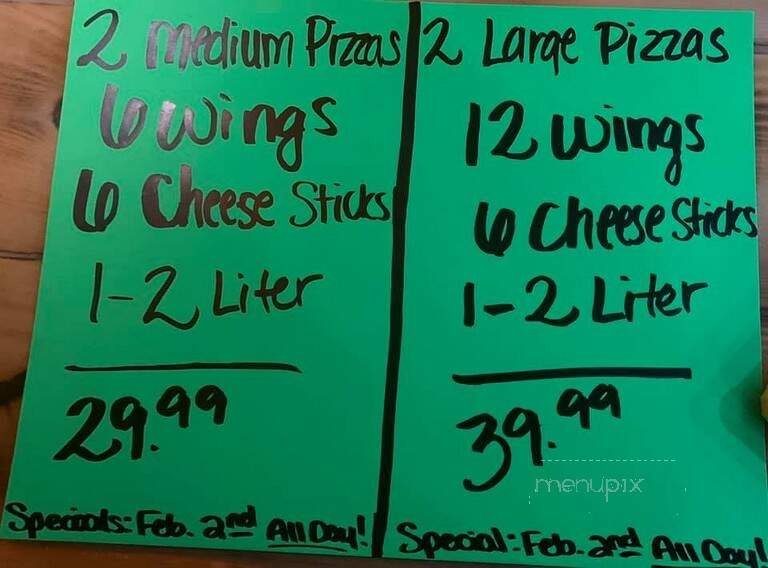 2 Medium Pizzas
6 Wings
6 Cheese Sticks
1-2 Liter
29.99
Specials: Feb. 2nd All Day!
2 Large Pizzas
12 Wings
6 Cheese Sticks
1-2 Liter
39.99
menupix
Special: Feb. 2nd All Day!